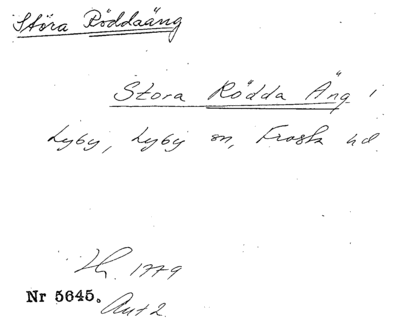 Stora Röddaäng
Stora Rödda Äng i
Lyby, Lyby sn, Frosta hd
Lh. 1779
Nr 5645.
Akt 2.